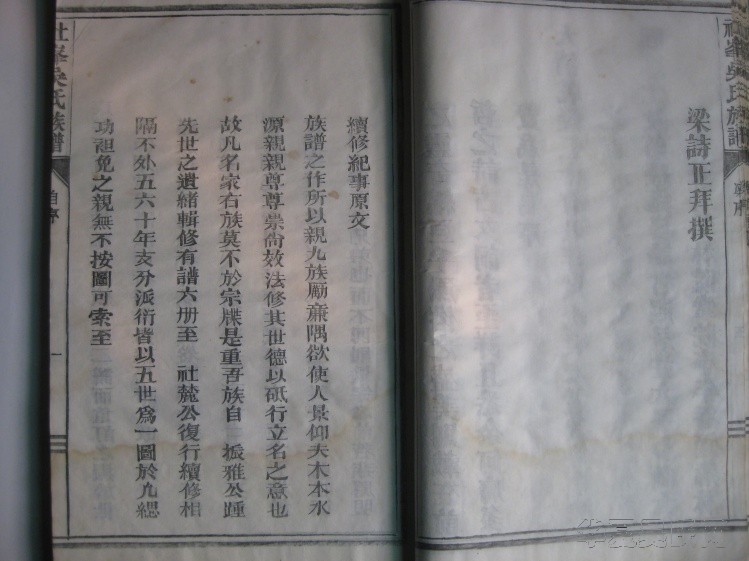 社峯吳氏族譜
序
梁詩正拜撰
續修紀事原文
族譜之作所以親九族勵亷隅欲使人景仰夫木本水
源親親尊尊崇尙效法修其世德以砥行立名之意也
故凡名家右族莫不於宗牒是重吾族自 振雅公踵
先世之遺緒輯修有譜六册至 社麓公復行續修相
隔不外五六十年支分派衍皆以五世爲一圖於凡緦
功袒免之親無不按圖可索至
社峯吳氏族譜
自序
一